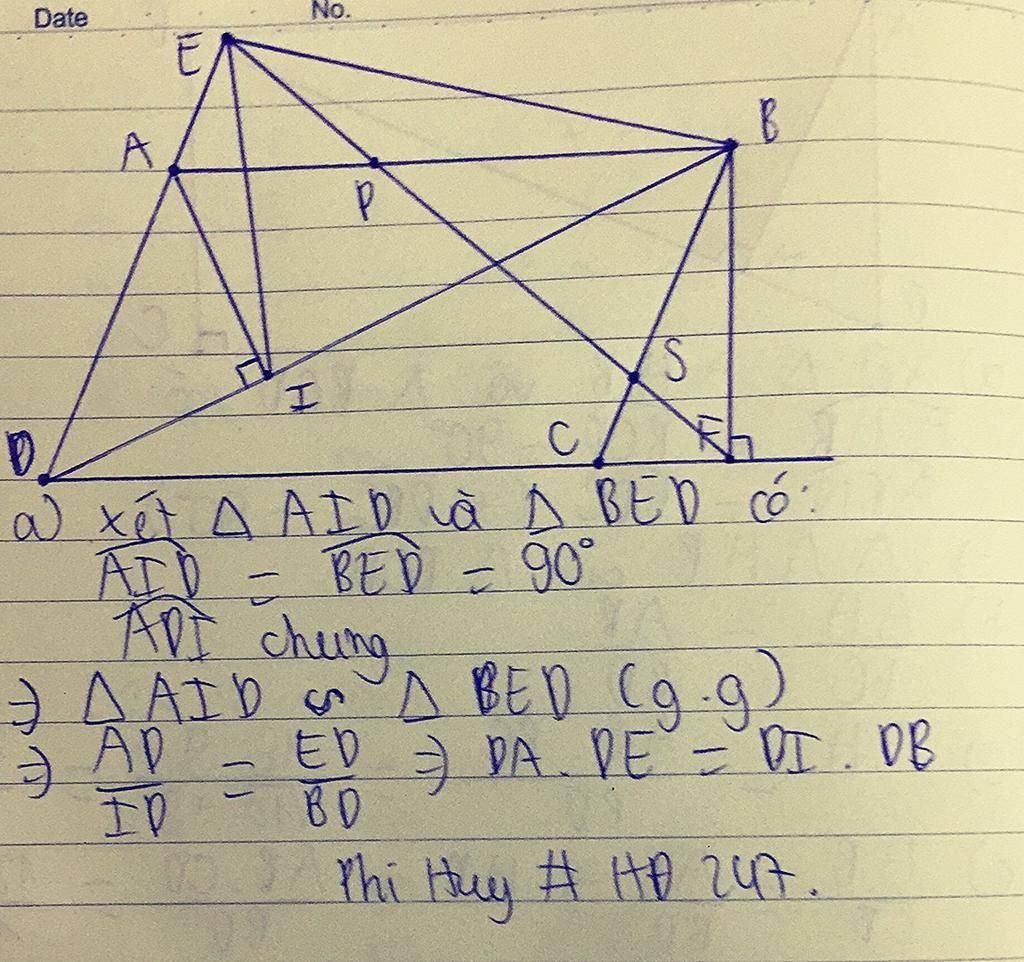 Date No.
E
A
B
P
S
I
D
C
F
a) xét Δ AID và Δ BED có:
AID = BED = 90°
ADI chung
=) Δ AID ∽ Δ BED (g.g)
=) AD/ID = ED/BD =) DA. DE = DI. DB
Phi Huy # HĐ 247.